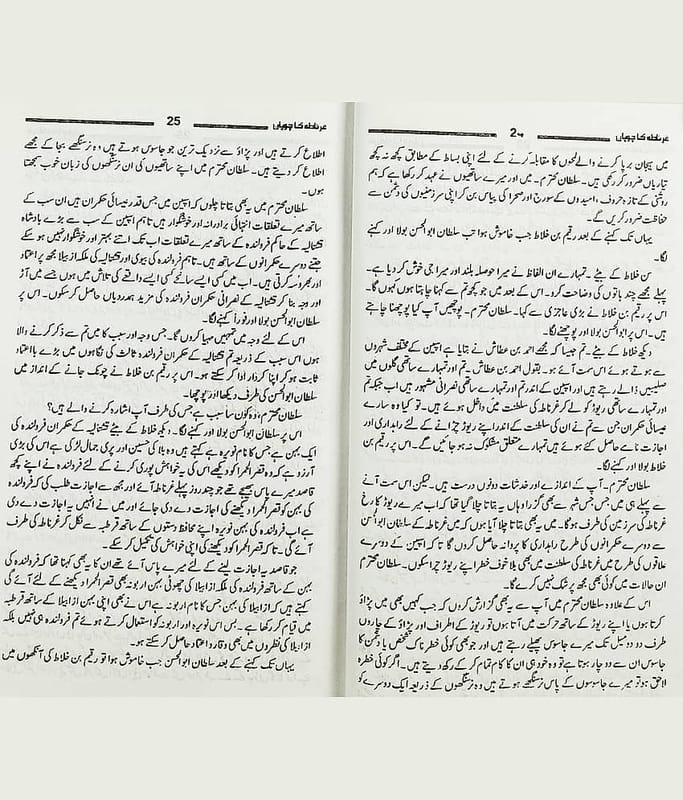 غرناطہ کا چوپان 24
میں ہیجان برپا کرنے والے لمحوں کا مقابلہ کرنے کے لئے اپنی بساط کے مطابق کچھ نہ کچھ
تیاریاں ضرور کر رکھی ہیں۔ سلطان محترم۔ میں اور میرے ساتھیوں نے عہد کر رکھا ہے کہ ہم
روشنی کے تازہ حروف، امیدوں کے سورج اور صحرا کی پیاس بن کر اپنی سرزمینوں کی دشمن سے
حفاظت ضرور کریں گے۔
یہاں تک کہنے کے بعد رقیم بن خلاط جب خاموش ہوا تب سلطان ابوالحسن بولا اور کہنے
لگا۔
سن خلاط کے بیٹے۔ تمہارے ان الفاظ نے میرا حوصلہ بلند اور میرا جی خوش کر دیا ہے۔
پہلے مجھے چند باتوں کی وضاحت کرو۔ اس کے بعد میں جو کچھ تم سے کہنا چاہتا ہوں کہوں گا۔
اس پر رقیم بن خلاط نے بڑی عاجزی سے کہا۔ سلطان محترم۔ پوچھیں آپ کیا پوچھنا چاہتے
ہیں۔ اس پر ابوالحسن بولا اور پوچھنے لگا۔
دیکھ خلاط کے بیٹے۔ تم جیسا کہ مجھے احمد بن عطاش نے بتایا ہے اسپین کے مختلف شہروں
سے ہوتے ہوئے اس سمت آئے ہو۔ بقول احمد بن عطاش۔ تم اور تمہارے ساتھی گلوں میں
صلیبیں ڈالے رہتے ہیں اور اسپین کے اندر تم اور تمہارے ساتھی نصرانی مشہور ہیں اب جبکہ تم
اور تمہارے ساتھی ریوڑ کو لے کر غرناطہ کی سلطنت میں داخل ہوئے ہیں۔ تو کیا وہ سارے
عیسائی حکمران جن سے تم نے ان کی سلطنت کے اندر اپنے ریوڑ چرانے کے لئے راہداری اور
اجازت نامے حاصل کئے ہوئے ہیں تمہارے متعلق مشکوک نہ ہو جائیں گے۔ اس پر رقیم بن
خلاط بولا اور کہنے لگا۔
سلطان محترم۔ آپ کے اندازے اور خدشات دونوں درست ہیں۔ لیکن اس سمت آنے
سے پہلے ہی میں جس جس شہر سے بھی گزرا وہاں یہ بتاتا چلا گیا تھا کہ اب میرے ریوڑ کا رخ
غرناطہ کی سرزمین کی طرف ہو گا۔ میں یہ بھی بتاتا چلا آیا ہوں کہ میں غرناطہ کے سلطان ابوالحسن
سے دوسرے حکمرانوں کی طرح راہداری کا پروانہ حاصل کروں گا تاکہ اسپین کے دوسرے
علاقوں کی طرح میں غرناطہ کی سلطنت میں بھی بلا خوف خطر اپنے ریوڑ چرا سکوں۔ سلطان محترم
ان حالات میں کوئی بھی مجھ پر شک نہیں کرے گا۔
اس کے علاوہ سلطان محترم میں آپ سے یہ بھی گزارش کروں کہ جب کہیں بھی میں پڑاؤ
کرتا ہوں یا اپنے ریوڑ کے ساتھ حرکت میں آتا ہوں تو ریوڑ کے اطراف اور پڑاؤ کے چاروں
طرف دو دو میل تک میرے جاسوس پھیلے رہتے ہیں اور جو بھی کوئی خطرناک شخص یا دشمن کا
جاسوس ان سے دوچار ہوتا ہے تو وہ خود ہی ان کا کام تمام کر کے رکھ دیتے ہیں۔ اگر کوئی خطرہ
لاحق ہو تو میرے جاسوسوں کے پاس نرسنگھے ہوتے ہیں وہ نرسنگھوں کے ذریعہ ایک دوسرے کو
غرناطہ کا چوپان 25
اطلاع کرتے ہیں اور پڑاؤ سے نزدیک ترین جو جاسوس ہوتے ہیں وہ نرسنگھے بجا کے مجھے
اطلاع کر دیتے ہیں۔ سلطان محترم میں اپنے ساتھیوں کی ان نرسنگھوں کی زبان خوب سمجھتا
ہوں۔
سلطان محترم میں یہ بھی بتاتا چلوں کہ اسپین میں جس قدر عیسائی حکمران ہیں ان سب کے
ساتھ میرے تعلقات انتہائی برادرانہ اور خوشگوار ہیں تاہم اسپین کے سب سے بڑے بادشاہ
قشتالیہ کے حاکم فرولندہ کے ساتھ میرے تعلقات اب تک اتنے بہتر اور خوشگوار نہیں ہو سکے
جتنے دوسرے حکمرانوں کے ساتھ ہیں۔ تاہم فرولندہ کی بیوی اور قشتالیہ کی ملکہ ازابیلا مجھ پر اعتماد
اور بھروسہ کرتی ہیں۔ اب میں کسی ایسے سانحے کسی ایسے واقعے کی تلاش میں ہوں جسے میں آڑ
اور وجہ بنا کر قشتالیہ کے نصرانی حکمران فرولندہ کی مزید ہمدردیاں حاصل کر سکوں۔ اس پر
سلطان ابوالحسن بولا اور فوراً کہنے لگا۔
اس کے لئے وجہ میں تمہیں مہیا کروں گا۔ جس وجہ اور سبب کا میں تم سے ذکر کرنے والا
ہوں اس سبب کے ذریعہ تم قشتالیہ کے حکمران فرولندہ ثالث کی نگاہوں میں بڑے بااعتماد
ثابت ہو کر اپنا کردار ادا کر سکتے ہو۔ اس پر رقیم بن خلاط نے چونک جانے کے انداز میں
سلطان ابوالحسن کی طرف دیکھا اور پوچھا۔
سلطان محترم، وہ کون سا سبب ہے جس کی طرف آپ اشارہ کرنے والے ہیں؟
اس پر سلطان ابوالحسن بولا اور کہنے لگا۔ دیکھ خلاط کے بیٹے قشتالیہ کے حکمران فرولندہ کی
ایک بہن ہے جس کا نام نویرہ ہے کہتے ہیں وہ بلا کی حسین اور پری جمال لڑکی ہے اس کی بڑی
آرزو ہے کہ وہ قصر الحمرا کو دیکھے اس کی یہ خواہش پوری کرنے کے لئے فرولندہ نے اپنے کچھ
قاصد میرے پاس بھیجے تھے جو چند روز پہلے غرناطہ آئے اور مجھ سے اجازت طلب کی کہ فرولندہ
کی بہن کو قصر الحمرا دیکھنے کی اجازت دے دی جائے اور میں نے انہیں یہ اجازت دے دی
ہے اب فرولندہ کی بہن نویرہ اپنے محافظ دستوں کے ساتھ قرطبہ سے نکل کر غرناطہ کی طرف
آئے گی۔ تاکہ قصر الحمرا کو دیکھنے کی اپنی خواہش کی تکمیل کر سکے۔
جو قاصد یہ اجازت لینے کے لئے میرے پاس آئے تھے ان کا یہ بھی کہنا تھا کہ فرولندہ کی
بہن کے ساتھ فرولندہ کی ملکہ ازابیلا کی چھوٹی بہن اربونہ بھی قصر الحمرا دیکھنے کے لئے آئے گی
کہتے ہیں کہ ازابیلا کی بہن جس کا نام اربونہ ہے اس نے بھی اپنی بہن ازابیلا کے ساتھ قرطبہ
میں قیام کر رکھا ہے۔ بس اس نویرہ اور اربونہ کو استعمال کرتے ہوئے تم فرولندہ ہی نہیں بلکہ
ازابیلا کی نظروں میں بھی وقار و اعتماد حاصل کر سکتے ہو۔
یہاں تک کہنے کے بعد سلطان ابوالحسن جب خاموش ہوا تو رقیم بن خلاط کی آنکھوں میں